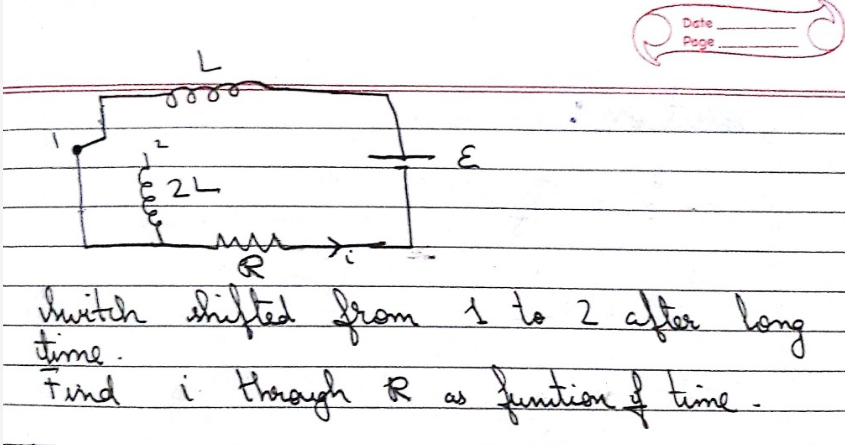 Date
Page
L
1
2
2L
ε
R
i
Switch shifted from 1 to 2 after long
time.
Find i through R as function of time.